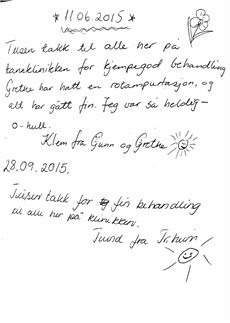 * 11.06.2015 *
Tusen takk til alle her på
tannklinikken for kjempegod behandling
Grethe har hatt en rotamputasjon, og
alt har gått fin. Jeg var så heldig -
0-hull.
Klem fra Gunn og Grethe
28.09.2015.
Tusen takk for fin behandling
til alle her på klinikken.
Turid fra